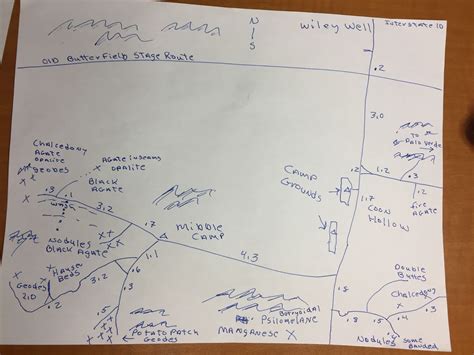 N
S
Wiley Well
Interstate 10
Old Butterfield Stage Route
.2
3.0
To
Palo Verde
.2
1.2
.3
.2
Fire
Agate
Camp
Grounds
1.7
Coon
Hollow
Chalcedony
Agate
Opalite
Geodes
Agate in seams
Opalite
Black
Agate
.3
.1
Wash
3.2
.7
Mibble
Camp
Nodules
Black Agate
4.3
Hauser
Beds
Geodes
210
.2
.6
.3
1.1
.5
Potato Patch
Geodes
Botryoidal
Psilomelane
Manganese X
Double
Buttes
Chalcedony
.8
.8
.5
.4
Nodules some
banded